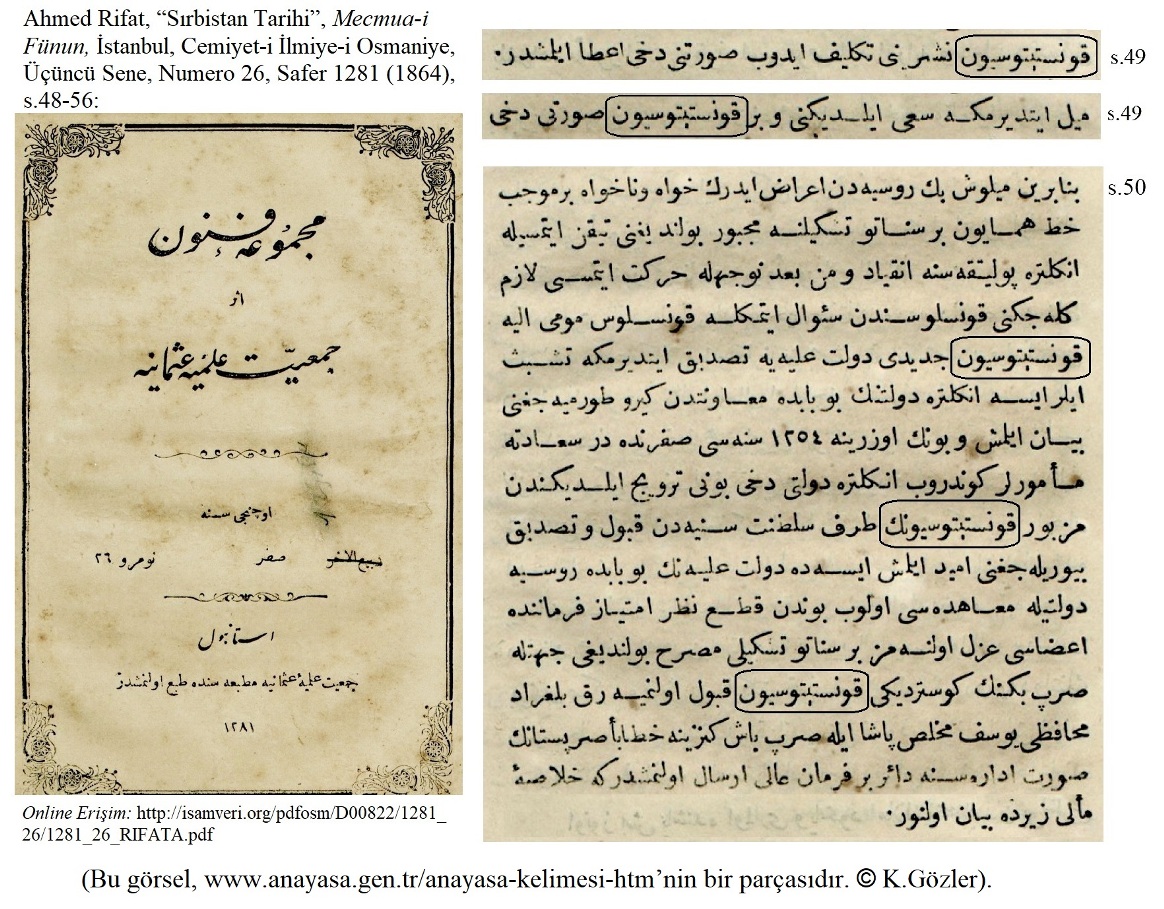 Ahmed Rifat, “Sırbistan Tarihi”, Mecmua-i
Fünun, İstanbul, Cemiyet-i İlmiye-i Osmaniye,
Üçüncü Sene, Numero 26, Safer 1281 (1864),
s.48-56:
مجموعه فنون
اثر
جمعيت علميه عثمانيه
اوچنجى سنه
ربيع الاخر صفر نومرو ٢٦
استانبول
جمعيت علميه عثمانيه مطبعه سنده طبع اولنمشدر
١٢٨١
Online Erişim: http://isamveri.org/pdfosm/D00822/1281_
26/1281_26_RIFATA.pdf
قونستيتوسيون نشرينى تكليف ايدوب صورتنى دخى اعطا ايلمشدر٠ s.49
ميل ايتديرمكه سعى ايلديكنى و بر قونستيتوسيون صورتى دخى s.49
بنابرين ميلوش بك روسيه دن اعراض ايدرك خواه وناخواه برموجب s.50
خط همايون بر سناتو تشكيلنه مجبور بولنديغنى تيقن ايتمسيله
انكلتره پوليتقه سنه انقياد و من بعد نوجهله حركت ايتمسى لازم
كله جكنى قونسلوسندن سئوال ايتمكله قونسلوس مومى اليه
قونستيتوسيون جديدى دولت عليه يه تصديق ايتديرمكه تشبث
ايلر ايسه انكلتره دولتنك بو بابده معاونتدن كيرو طورميه جغنى
بيان ايلمش و بونك اوزرينه ١٢٥٤ سنه سى صفرنده در سعادته
مأمورلر كوندروب انكلتره دولتى دخى بونى ترويج ايلديكندن
مزبور قونستيتوسيونك طرف سلطنت سنيه دن قبول و تصديق
بيوريله جغنى اميد ايلمش ايسه ده دولت عليه نك بو بابده روسيه
دولتيله معاهده سى اولوب بوندن قطع نظر امتياز فرماننده
اعضاسى عزل اولنه مز بر سناتو تشكيلى مصرح بولنديغى جهتله
صرب بكنك كوسترديكى قونستيتوسيون قبول اولنميه رق بلغراد
محافظى يوسف مخلص پاشا ايله صرب باش كنزينه خطابأ صربستانك
صورت اداره سنه دائر بر فرمان عالى ارسال اولنمشدركه خلاصهٔ
مألى زيرده بيان اولنور٠
(Bu görsel, www.anayasa.gen.tr/anayasa-kelimesi-htm’nin bir parçasıdır. © K.Gözler).